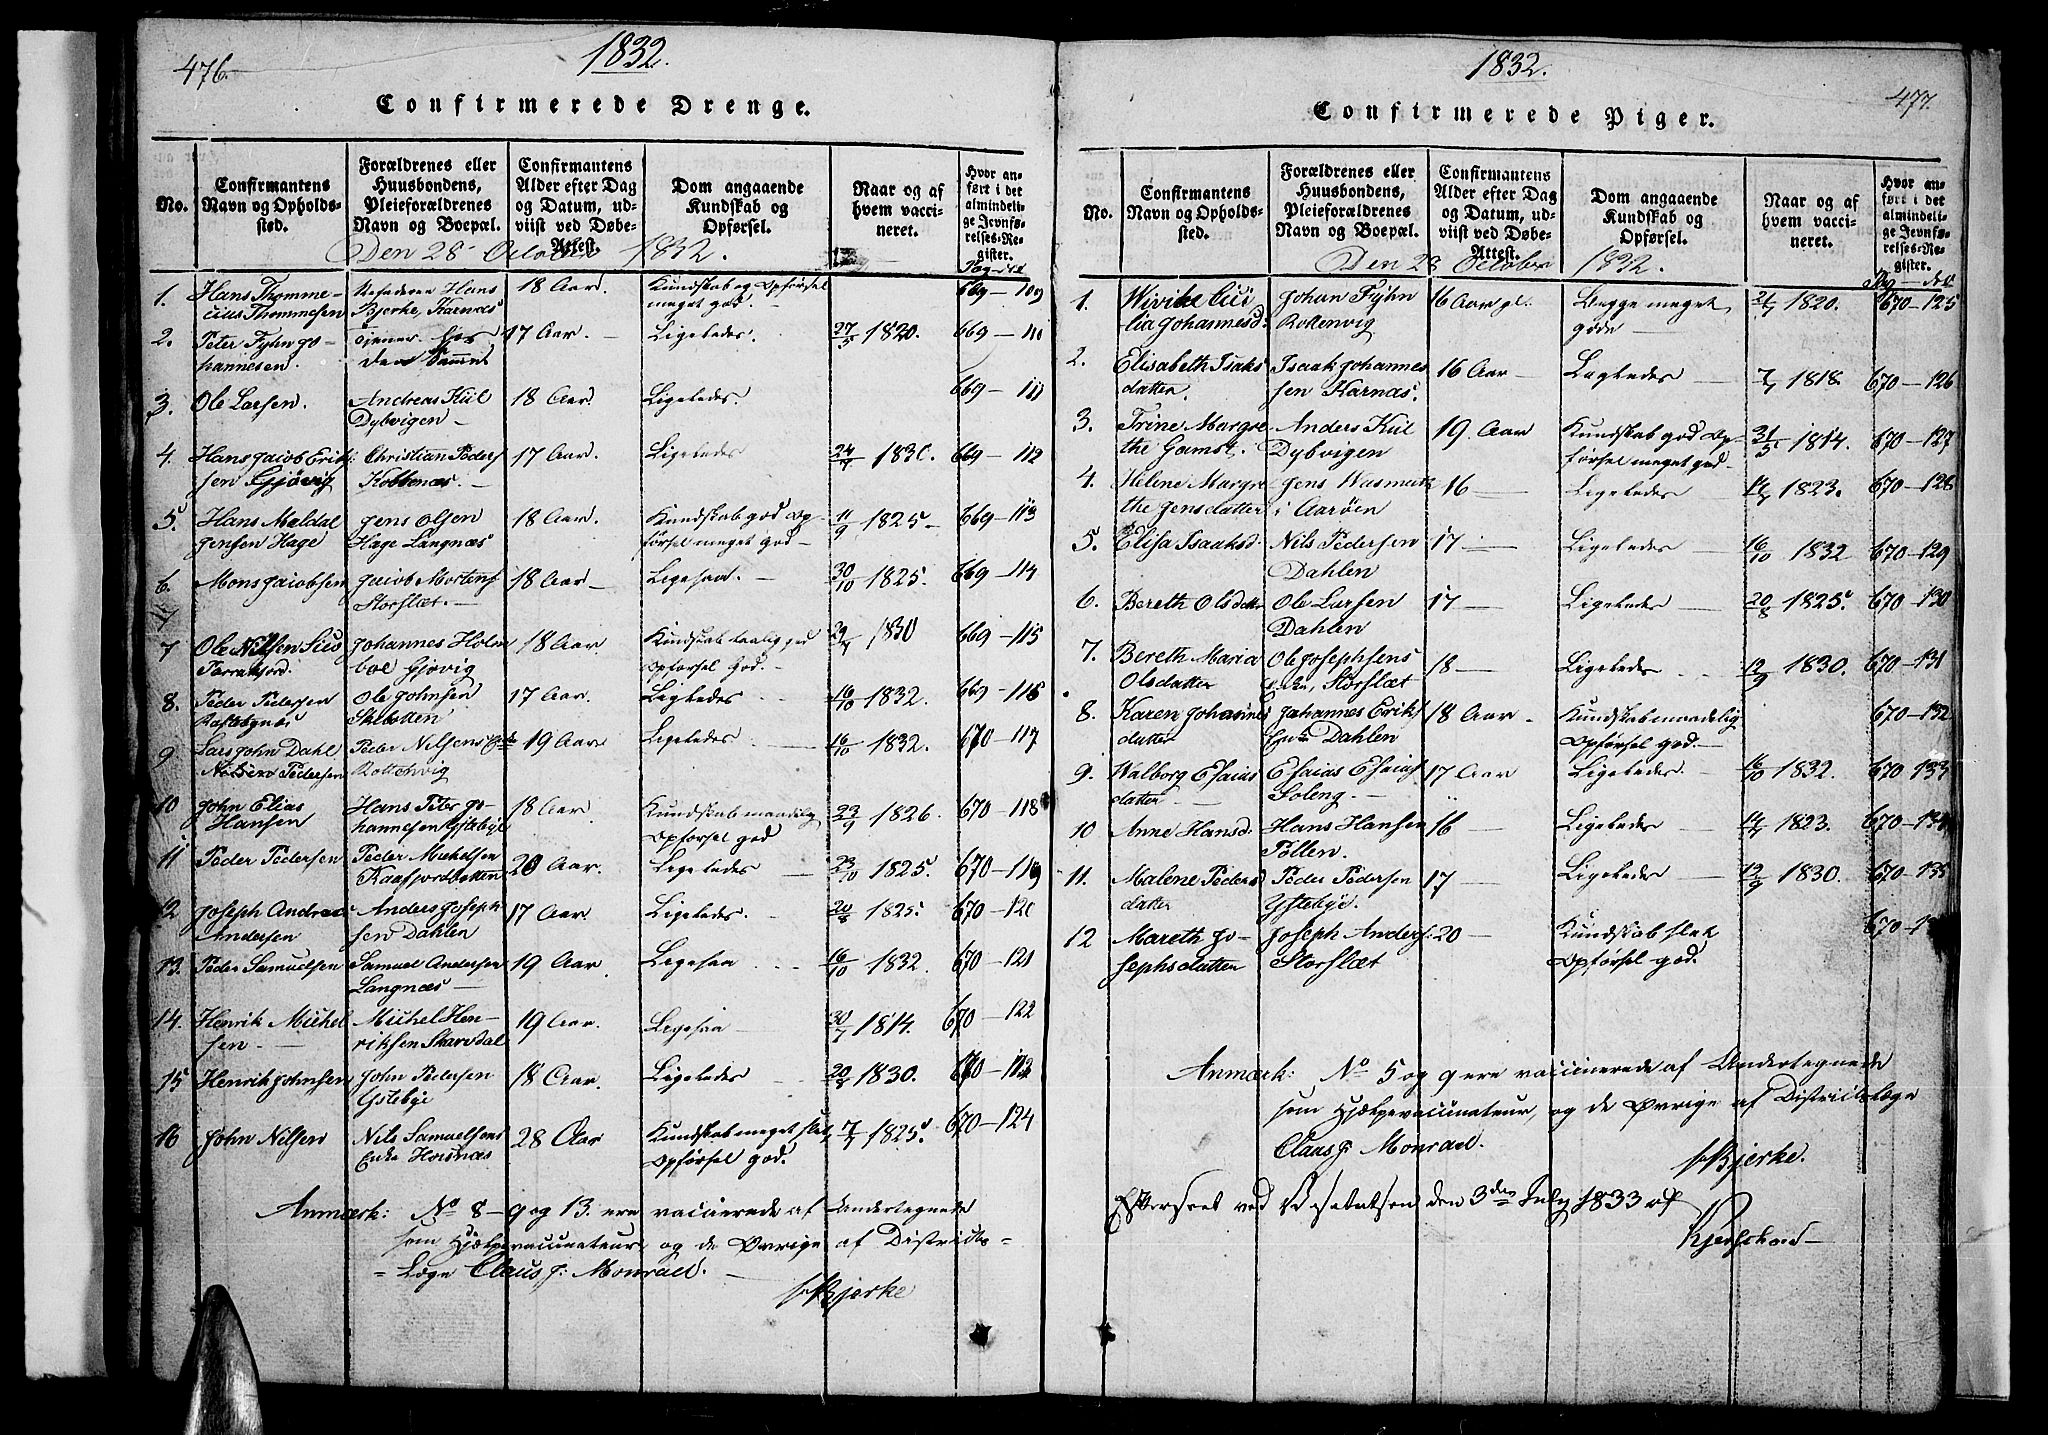 476.
1832.
Confirmerede Drenge.
No.
Confirmantens Navn og Opholdssted.
Forældrenes eller Huusbondens, Pleieforældrenes Navn og Boepæl.
Confirmantens Alder efter Dag og Datum, udviist ved Døbe-Attest.
Dom angaaende Kundskab og Opførsel.
Naar og af hvem vaccineret.
Hvor anført i det almindelige Jevnførelses-Register.
Den 28 October 1832.
Pag – No
1. Hans Thomme- Hans 18 Aar. Kundskab og Opførsel 669 – 109
cius Thommesen Bjerke, Karnæs meget god.
2. Peter Fyhn Jo- Tjener hos 17 Aar. Ligeledes. 27/5 1820. 669 – 110
hannesen. den Samme
3. Ole Larsen. Andreas Kiil 18 Aar. Ligeledes. 669 – 111
Dybvigen –
4. Hans Jacob Erik- Christian Peders 17 Aar. Ligeledes 24/7 1830. 669 – 112
sen Gjøvig Kobbenæs. –
5. Hans Meldal Jens Olsen 18 Aar. Kundskab god Op- 11/9 1825 – 669 – 113
Jensen Hage Hage Langnæs førsel meget god –
6. Mons Jacobsen Jacob Mortens 18 Aar – Ligesaa. – 30/10 1825. 669 – 114
Storslæt. –
7 Ole Nilsen Johannes Holm 18 Aar Kundskab taalig god 1830 669 – 115
boe Gjøvig Opførsel God. –
8. Peder Pedersen Ole Johnsen 17 Aar Ligeledes 16/10 1832. 669 – 116
9 Lars John Dahl Peder Nilsens 19 Aar Ligeledes 16/10 1832. 670 – 117
Pedersen Rottenvig
10 John Elias Hans Peter Jo- 18 Aar Kundskab maadelig 23/9 1826. 670 – 118
Hansen hannesen Ystebye Opførsel god
11 Peder Pedersen Peder Michelsen 20 Aar. Ligeledes – 23/10 1825. 670 – 119
Kaafjordbotten
12 Joseph Andreas Anders Joseph 17 Aar. Ligeledes. 20/8 1825. 670 – 120
Andersen sen Dahlen
13. Peder Samuelsen Samuel Andersen 19 Aar Ligesaa 16/10 1832. 670 – 121
Langnæs –
14. Henrik Michel Michel Hen- 19 Aar. Ligesaa – 30/7 1814. 670 – 122
sen. – riksen Skardal
15 Henrik Johnsen John Pedersen 18 Aar. Ligeledes 20/8 1830. 670 – 123
Ystebye
16 John Nilsen Nils Samuelsens 28 Aar Kundskab meget slet, 1825. 670 – 124
Enke Opførsel god.
Anmærk: No 8 – 9 og 13. ere vaccinerede af Undertegnede
som Hjælpevaccinateur og de Øvrige af Districts-
= Læge Claus J: Monrad. –
Bjerke
1832.
477.
Confirmerede Piger.
No.
Confirmantens Navn og Opholdssted.
Forældrenes eller Huusbondens, Pleieforældrenes Navn og Boepæl.
Confirmantens Alder efter Dag og Datum, udviist ved Døbe-Attest.
Dom angaaende Kundskab og Opførsel.
Naar og af hvem vaccineret.
Hvor anført i det almindelige Jevnførelses-Register.
Den 28 October 1832.
Pag – No
1. Wivike Cici Johan Fyhn 16 Aar gl. Begge meget 1820. 670 – 125
lia Johannesd: gode –
2. Elisabeth Isaks Isaak Johannes 16 Aar – Ligeledes – 1818. 670 – 126
datter. – sen Karnæs.
3. Trine Margre Anders Kiil 19. Aar Kundskab god Op- 31/5 1814. 670 – 127
the Gamst. Dybvigen førsel meget god –
4. Helene Margre Jens Wasmuth 16 – Ligeledes – 1823. 670 – 128
the Jensdatter i Aarøen
5. Elisa Isaaksd. Nils Pedersen 17 – Ligeledes 16/10 1832 670 – 129
Dahlen
6. Bereth Olsdatter Ole Larsen 17 – Ligeledes 20/8 1825. 670 – 130
Dahlen
7. Bereth Maria Ole Josephsens 18 – Ligeledes 12/9 1830. 670 – 131
Olsdatter Enke, Storslæt
8. Karen Johannes Johannes Eriks 18 Aar – Kundskab maadelig 670 – 132
datter Enke Dahlen Opførsel god. –
9. Walborg Esaias Esaias Esaias 17 Aar Ligeledes. 16/10 1832. 670 – 133
datter – Soleng. –
10 Anne Hansd: Hans Hansen 16 – Ligeledes 1823. 670 –
Pollen.
11. Malene Peders Peder Pedersen 17 – Ligeledes 12/9 1830. 670 – 135
datter Ystebye.
12 Mareth Jo- Joseph Anders: 20 – Kundskab slet 670 –
sephsdatter Storslæt Opførsel god.
Anmærk: No 5 og 9 ere vaccinerede af Undertegnede
som Hjælpevaccinateur, og de Øvrige af Districtslæge
Claus J: Monrad.
Bjerke.
Efterseet ved Visitatsen den 3den July 1833 af
Kjerschow –